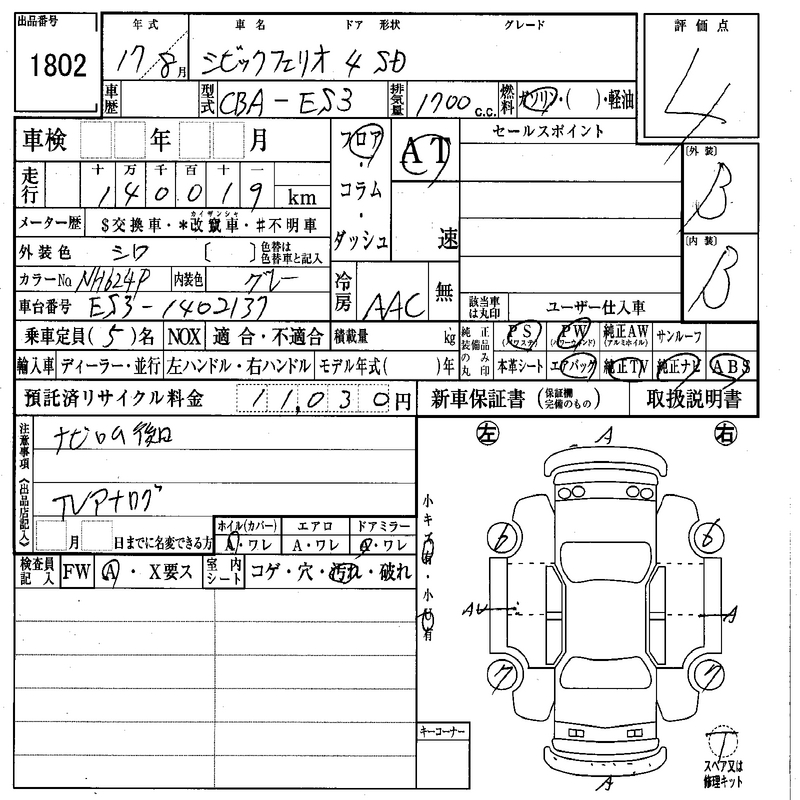 出品番号 年式 車名 ドア 形状 グレード 評価点
1802 17/8月 シビックフェリオ 4 SD 4
車歴 型式 CBA-ES3 排気量 1700 c.c. 燃料 ガソリン・( )・軽油
車検 年 月 フロア・コラム・ダッシュ AT 速 セールスポイント
〔外装〕 B
走行 十 万 千 百 十 一
1 4 0 0 1 9 km
メーター歴 $交換車・*改竄車・♯不明車
カイザンシャ
外装色 シロ 〔 〕 色替は色替車と記入
〔内装〕 B
カラーNo NH624P 内装色 グレー 冷房 AAC 無
車台番号 ES3-1402137 該当車は丸印 ユーザー仕入車
乗車定員(5)名 NOX 適合・不適合 積載量 kg 純正装備品のみ丸印 PS (パワステ) PW (パワーウィンド) 純正AW (アルミホイル) サンルーフ
輸入車 ディーラー・並行 左ハンドル・右ハンドル モデル年式( )年 本革シート エアバッグ 純正TV 純正ナビ ABS
預託済リサイクル料金 11,030円 新車保証書 (保証欄完備のもの) 取扱説明書
注意事項《出品店記入》
ナビロム後日
TVアナログ
月 日までに名変できる方
ホイル(カバー) エアロ ドアミラー
A・ワレ A・ワレ A・ワレ
検査員記入 FW A・X要ス 室内シート コゲ・穴・汚れ・破れ
左 A 右
小キズ有・小凹有
6 6
AU A
7 7
キーコーナー
A
T
スペア又は
修理キット